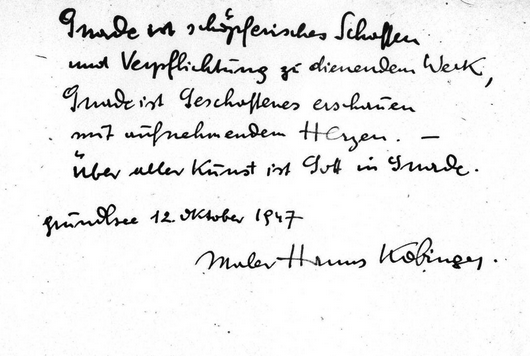 Gnade ist schöpferisches Schaffen
und Verpflichtung zu dienendem Werk,
Gnade ist Geschaffenes erschauen
mit aufnehmendem Herzen. —
Über aller Kunst ist Gott in Gnade.
Grundlsee 12. Oktober 1947
Maler Hanns Kobinger.